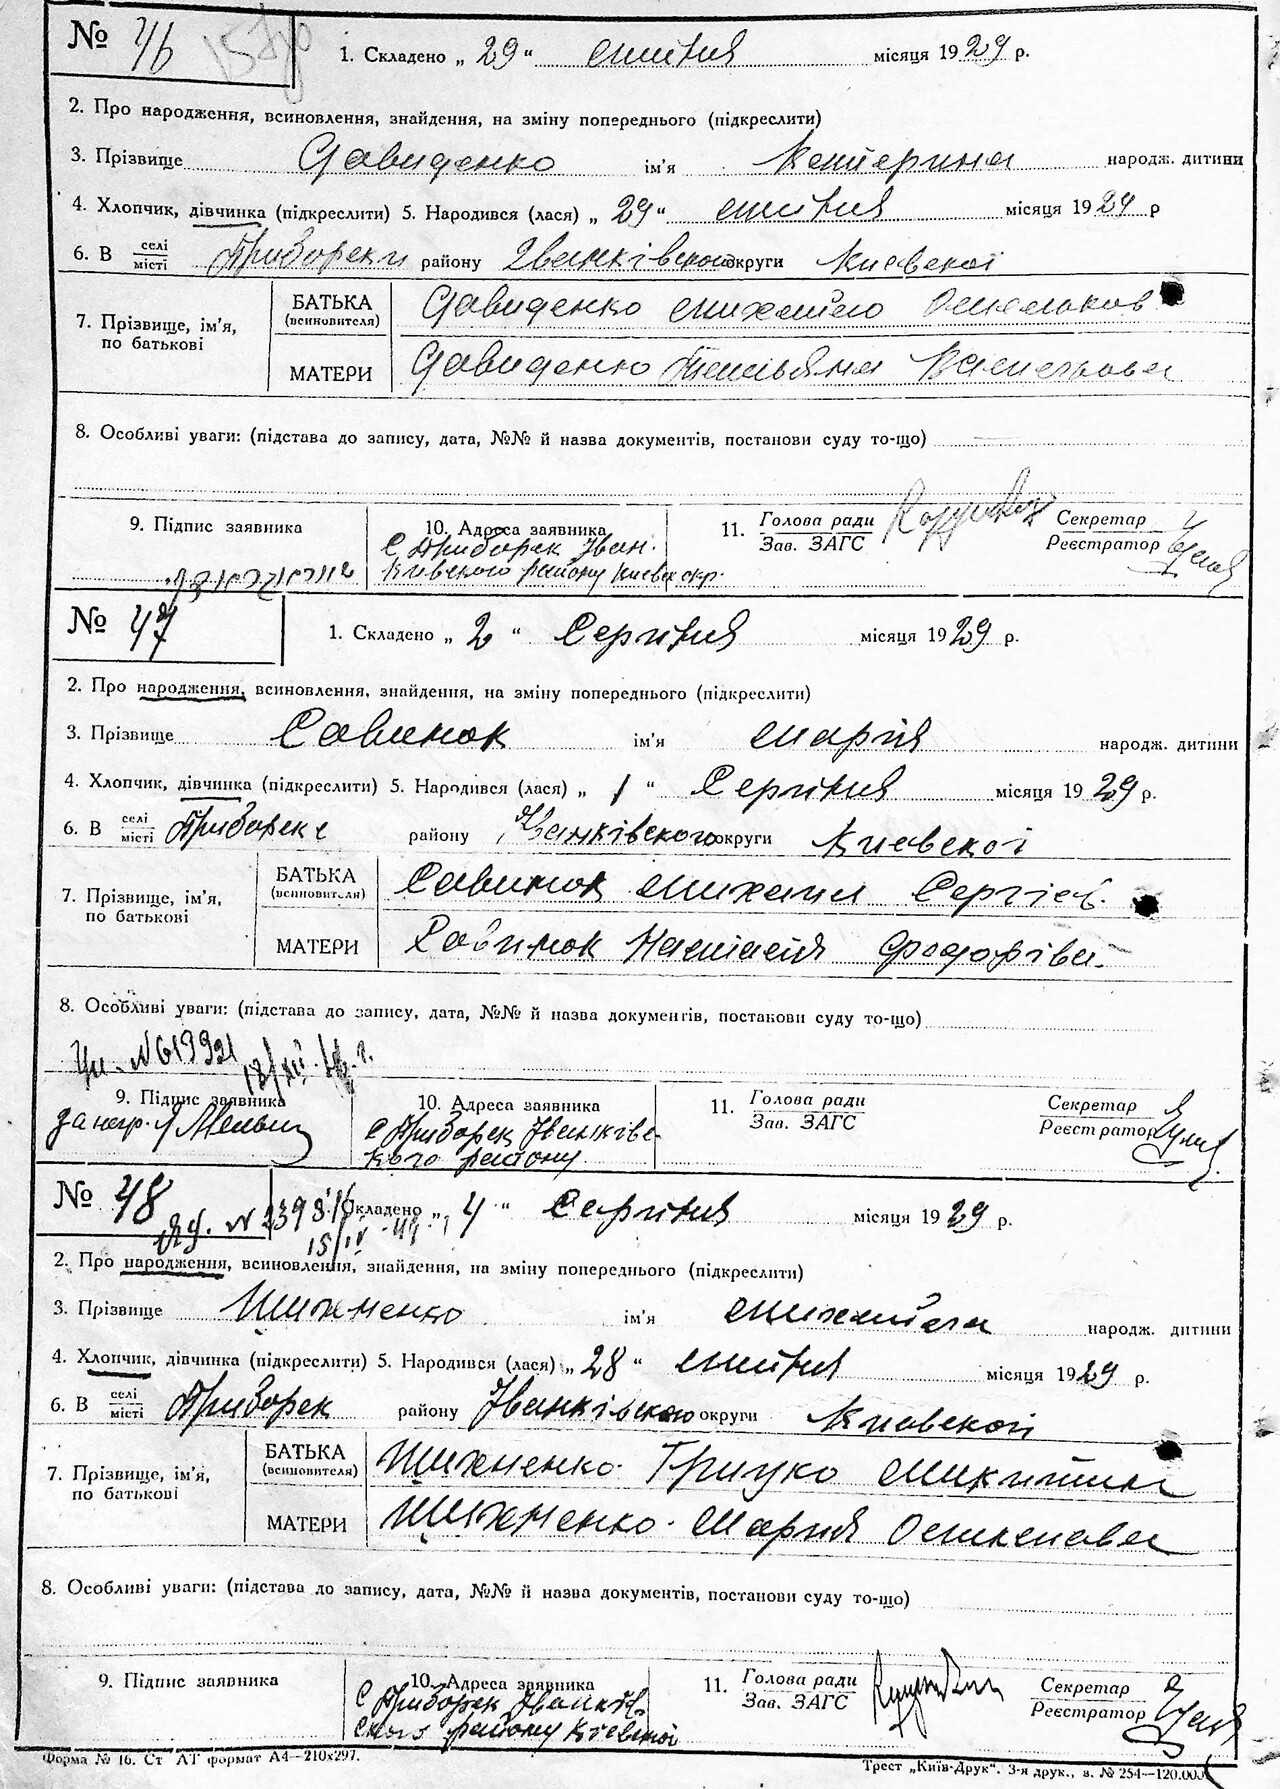 № 46
1. Складено „ 29 “ липня місяця 1929 р.
2. Про народження, всиновлення, знайдення, на зміну попереднього (підкреслити)
3. Прізвище Давиденко ім'я Катерина народж. дитини
4. Хлопчик, дівчинка (підкреслити) 5. Народився (лася) „ 29 “ липня місяця 1929 р
6. В селі місті Приборски району Іванківського округи Киевскої
7. Прізвище, ім'я, по батькові
БАТЬКА (всиновителя) Давиденко Михайло
МАТЕРИ Давиденко Татьяна
8. Особливі уваги: (підстава до запису, дата, №№ й назва документів, постанови суду то-що)
9. Підпис заявника
10. Адреса заявника
с Приборск Іван-
ківского району Киевск окр.
11. Голова ради
Зав. ЗАГС
Секретар
Реєстратор
№ 47
1. Складено „ 2 “ Серпня місяця 1929 р.
2. Про народження, всиновлення, знайдення, на зміну попереднього (підкреслити)
3. Прізвище Савинок ім'я Марія народж. дитини
4. Хлопчик, дівчинка (підкреслити) 5. Народився (лася) „ 1 “ Серпня місяця 1929 р.
6. В селі місті Приборске району Іванківского округи Киевскої
7. Прізвище, ім'я, по батькові
БАТЬКА (всиновителя) Савинок Михаил Сергіев.
МАТЕРИ Савинок Настасія Федорівн.
8. Особливі уваги: (підстава до запису, дата, №№ й назва документів, постанови суду то-що)
9. Підпис заявника
10. Адреса заявника
с Приборск Іванківс-
кого району
11. Голова ради
Зав. ЗАГС
Секретар
Реєстратор
№ 48
1. Складено „ 4 “ Серпня місяця 1929 р.
2. Про народження, всиновлення, знайдення, на зміну попереднього (підкреслити)
3. Прізвище ім'я Михайло народж. дитини
4. Хлопчик, дівчинка (підкреслити) 5. Народився (лася) „ 28 “ липня місяця 1929 р.
6. В селі місті Приборск району Іванківского округи Киевской
7. Прізвище, ім'я, по батькові
БАТЬКА (всиновителя) Грицко
МАТЕРИ Мария
8. Особливі уваги: (підстава до запису, дата, №№ й назва документів, постанови суду то-що)
9. Підпис заявника
10. Адреса заявника
с Приборск Іванків-
ского району
11. Голова ради
Зав. ЗАГС
Секретар
Реєстратор
Форма № 16. Ст АТ формат А4—210х297.
Трест „Київ-Друк“. 3-я друк., з. № 254—120.000